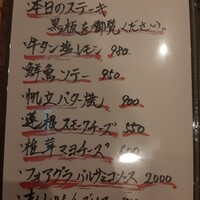 本日のステーキ
黒板を御覧ください。
牛タン塩レモン 980
鮮魚ソテー 950
帆立バター焼 900
蓮根スモークチーズ 550
椎茸マヨチーズ
フォアグラバルサミコソース 2000